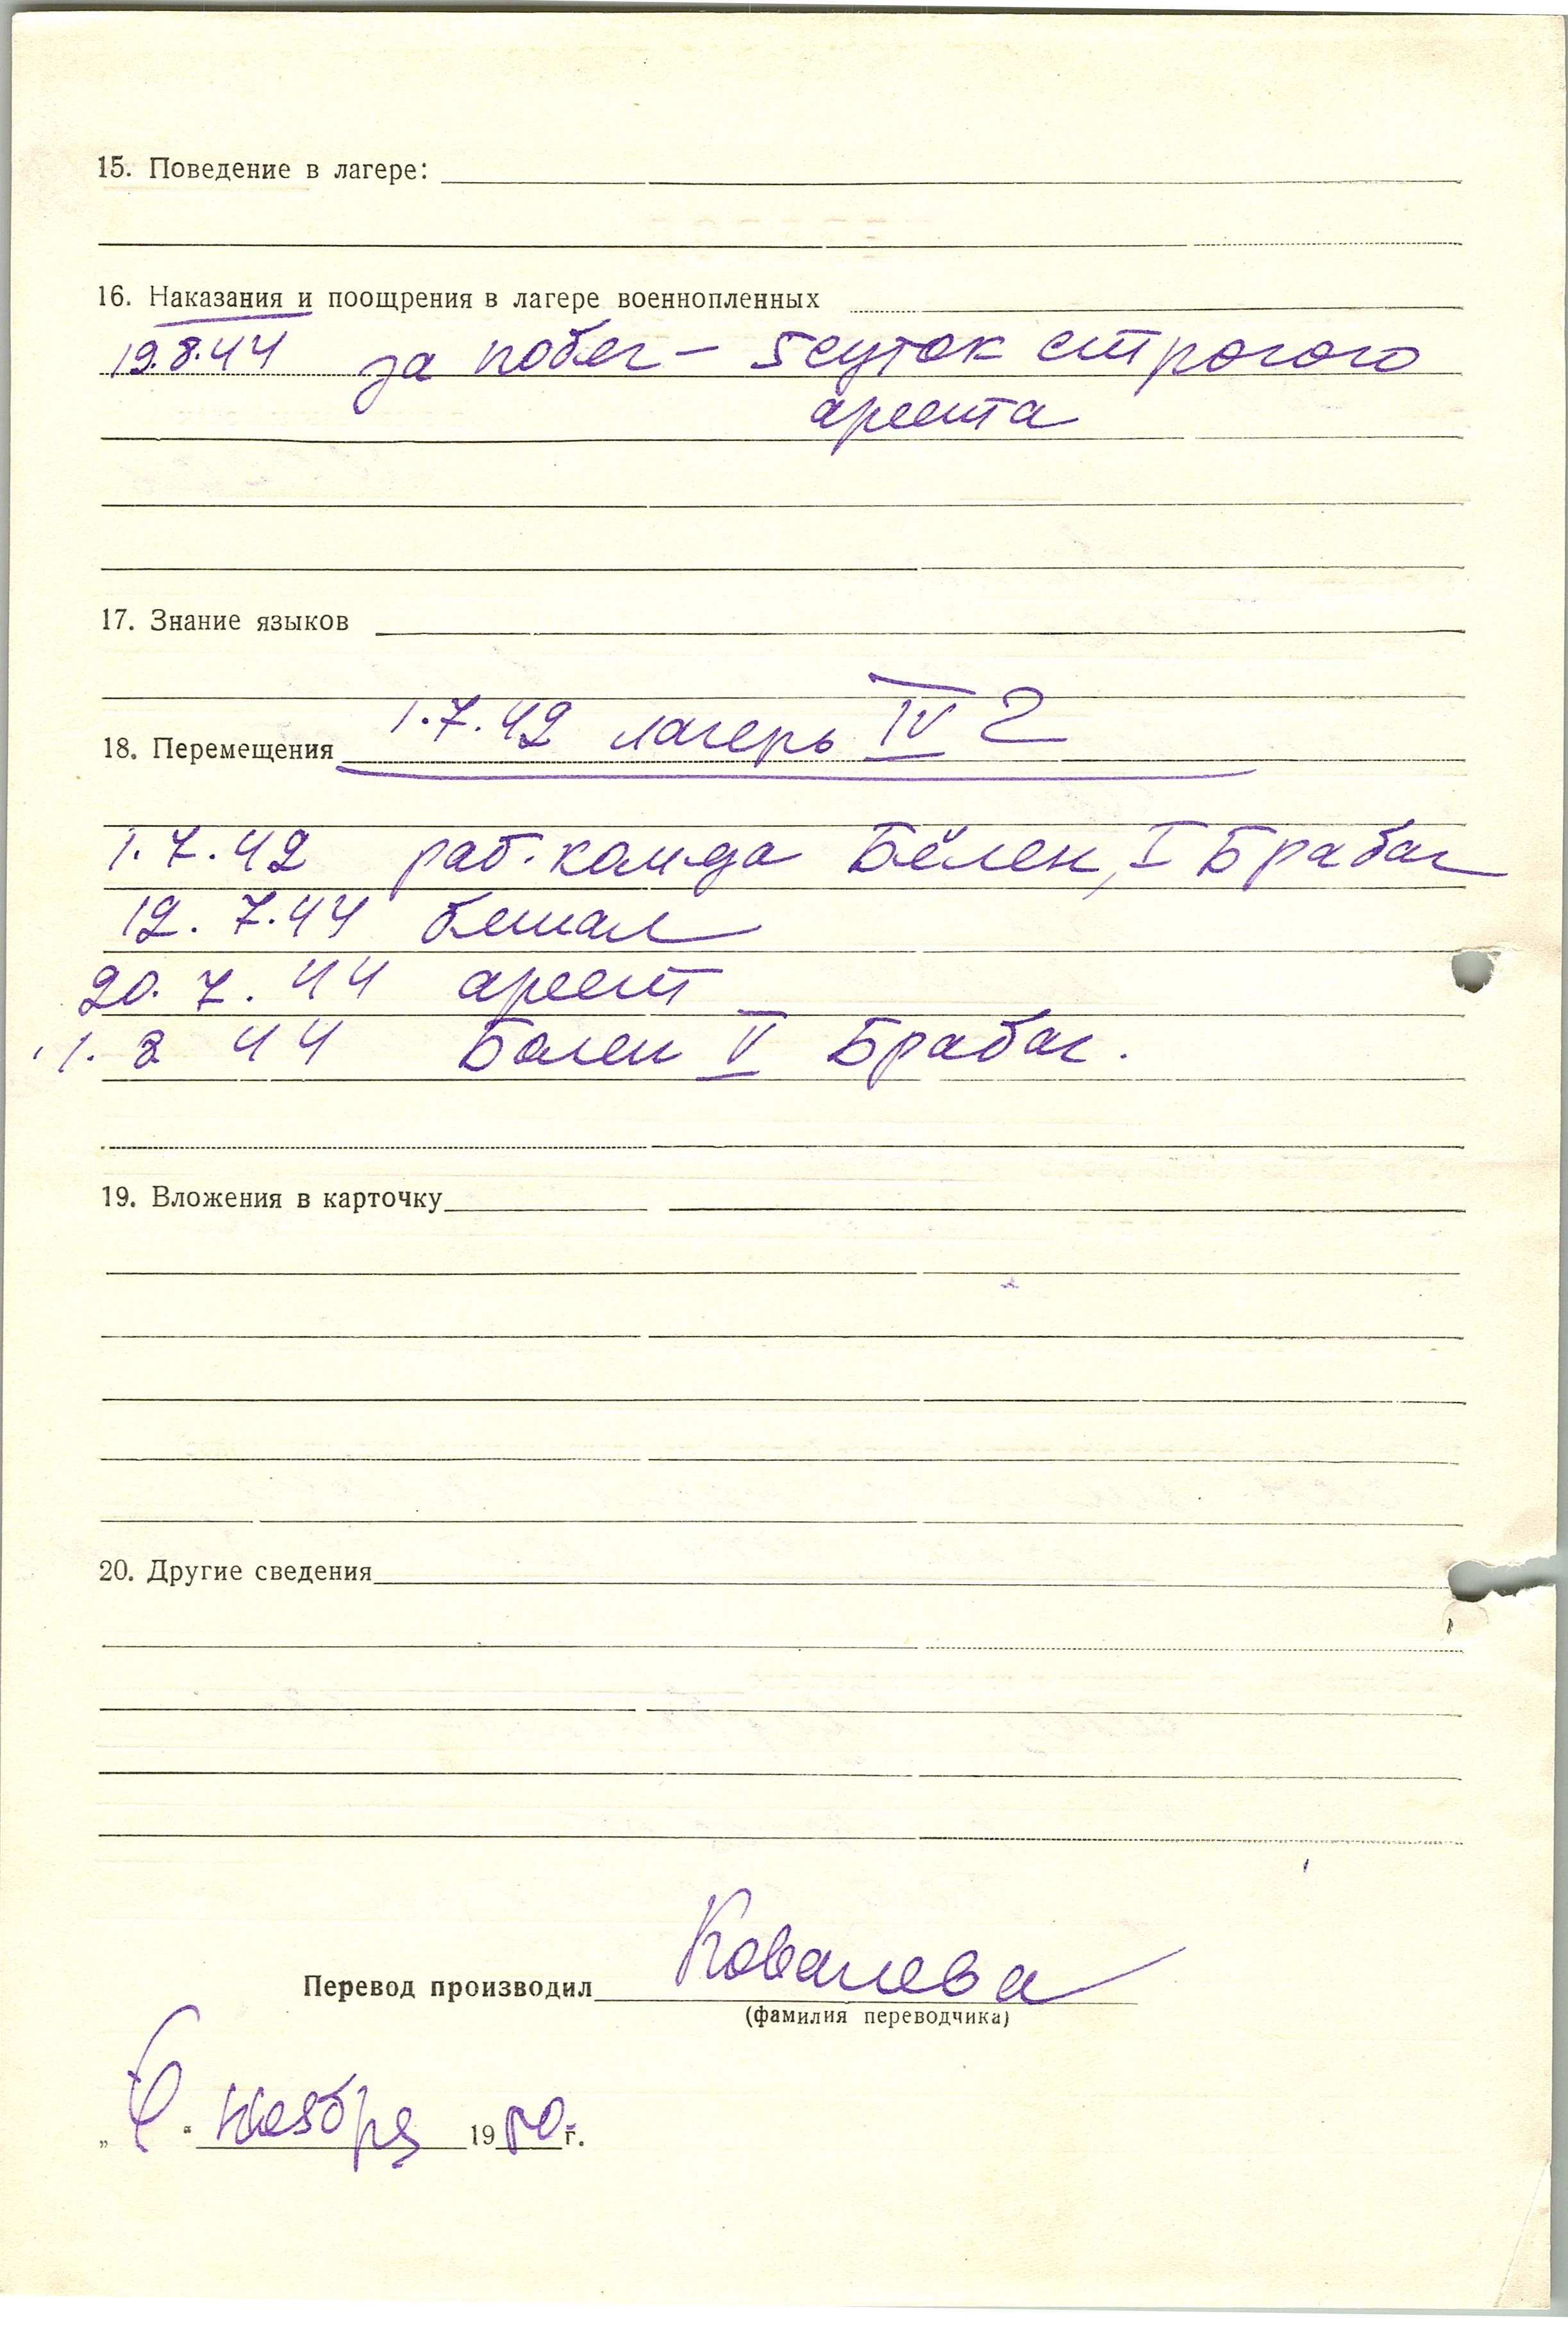 15. Поведение в лагере:
16. Наказания и поощрения в лагере военнопленных
19.8.44 за побег – 5 суток строгого
ареста
17. Знание языков
1.7.42 лагерь IV Г
18. Перемещения
1.7.42 раб. комда Бёлен, I Брабаг
12.7.44 бежал
20.7.44 арест
1.8 44 Бёлен V Брабаг.
19. Вложения в карточку
20. Другие сведения
Ковалева
Перевод производил
(фамилия переводчика)
" " ноября 19 г.